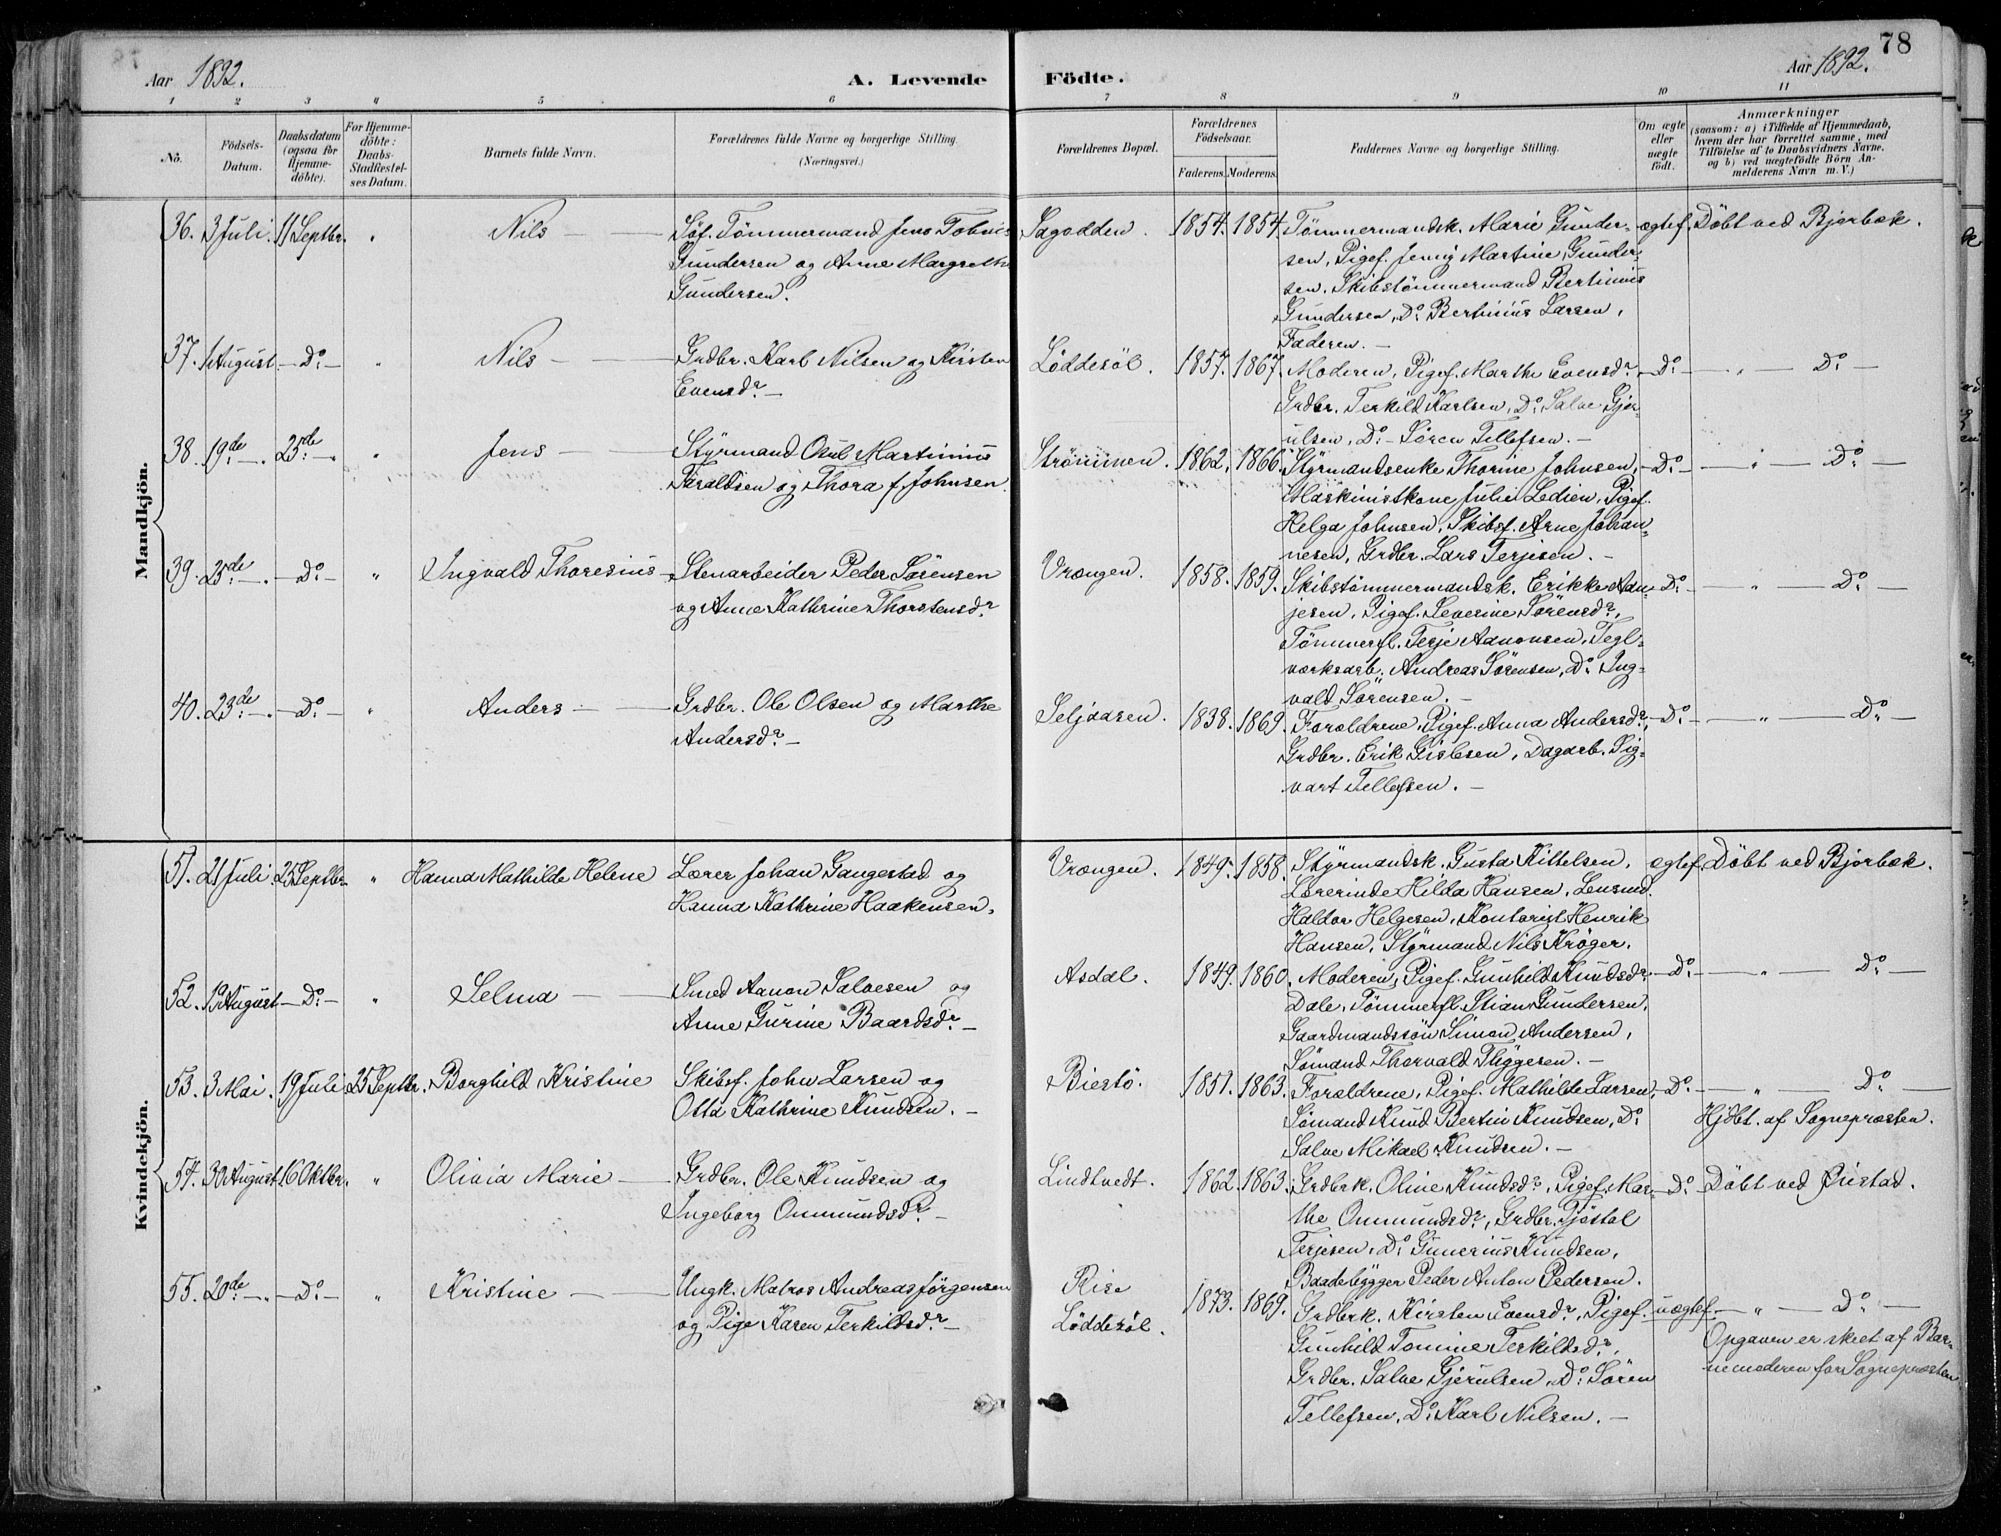 78
Aar 1892.
A. Levende
Födte.
Aar 1892.
1 2 3 " 5 6 7 8 9 10 11
No.
Födsels-
Datum.
Daabsdatum
(ogsaa for
Hjemme-
döbte).
For Hjemme-
döbte:
Daabs-
Stadfæstel-
ses Datum.
Barnets fulde Navn.
Forældrenes fulde Navne og borgerlige Stilling.
(Næringsvei.)
Forældrenes Bopæl.
Forældrenes
Födselsaar.
Faderens. Moderens.
Faddernes Navne og borgerlige Stilling.
Om ægte
eller
uægte
födt.
Anmærkninger
(saasom: a) i Tilfælde af Hjemmedaab,
hvem der har forrettet samme, med
Tilföielse af to Daabsvidners Navne.
og b) ved uægtefödte Börn An-
melderens Navn m. V.)
Mandkjön.
36. 3 Juli. 11 Septbr. " Nils —
Söf. Tömmermand Jens Tobias
Gundersen og Anne Margrethe
Gundersen.
Sagodden. 1854. 1854.
Tömmermandsk. Marie Gunder-
sen, Pigef. Jenny Martine Gunder-
sen. Skibstömmermand Bertinius
Gundersen, Do Bertinius Larsen,
Faderen. —
ægtef. Döbt ved Bjorbæk.
37. 1 August. — Do — " Nils —
Grdbr. Karl Nilsen og Kirsten
Evensdr. —
Löddesöl. 1857. 1867.
Moderen, Pigef. Marthe Evensdr.
Grdbr. Terkild Karlsen, Do Salve Gjer-
ulsen, Do — Sören Tellefsen. —
— Do — " — Do —
38. 19de — 25de — " Jens —
Styrmand Oluf Martinius
Taraldsen og Thora f. Johnsen.
Strömmen. 1862. 1866.
Styrmandsenke Thorine Johnsen,
Maskinistkone Julie Ledien, Pigef.
Helga Johnsen, Skibsf. Arne Johan-
nesen, Grdbr. Lars Terjesen. —
— Do — " — Do —
39. 23de — — Do — " Ingvald Thoresius —
Stenarbeider Peder Sörensen
og Anne Kathrine Thorstensdr.
Vrængen. 1858. 1859.
Skibstömmermandsk. Erikke Adn-
jesen, Pigef. Severine Sörensdr,
Tömmerfl. Terje Aanonsen, Tegl-
værksarb. Andreas Sörensen, Do Ing-
vald Sörensen. —
— Do — " — Do —
40. 23de — — Do — " Anders —
Grdbr. Ole Olsen og Marthe
Andersdr. —
Seljaasen. 1838. 1869.
Forældrene, Pigef. Anna Andersdr,
Grdbr. Erik Gislesen, Dagarb. Sig-
vart Tellefsen. —
— Do — " — Do —
Kvindekjön.
51. 21 Juli. 25 Septbr. " Hanna Mathilde Helene
Lærer Johan Gangestad og
Hanna Kathrine Haakensen.
Vrængen. 1849. 1858.
Styrmandsk. Gusta Kittelsen,
Lærerinde Hilda Hansen, Lensmd.
Haldor Helgesen, Kontorist Henrik
Hansen, Styrmand Nils Kröger.
ægtef. Döbt ved Bjorbæk.
52. 19 August — Do — " Selma —
Smed Aanon Salvesen og
Anne Gurine Baardsdr. —
Asdal. 1849. 1860.
Moderen, Pigef. Gunhild Knudsdr.
Dale, Tömmerfl. Stian Gundersen,
Gaardmandssön Simon Andersen,
Sömand Thorvald Thygesen. —
— Do — " — Do —
53. 3 Mai. 19 Juli 25 Septbr. Borghild Kristine
Skibsf. John Larsen og
Otta Kathrine Knudsen. —
Biestö. 1851. 1863.
Forældrene, Pigef. Mathilde Larsen,
Sömand Knud Bertin Knudsen, Do
Salve Mikael Knudsen. —
— Do — " — Do —
Hjdbt. af Sognepræsten.
54. 30 August 16 Oktbr. " Olivia Marie —
Grdbr. Ole Knudsen og
Ingeborg Ommundsdr. —
Lindtvedt. 1862. 1863.
Grdbrk. Oline Knudsdr, Pigef. Mar-
the Ommundsdr, Grdbr. Tjöstol
Terjesen, Do Gunerius Knudsen,
Baadebygger Peder Anton Pedersen.
— Do — Döbt ved Öiestad.
55. 20de — — Do — " Kristine —
Ungk. Matros Andreas Jörgensen
og Pige Karen Terkildsdr —
Rise
Löddesöl.
1873. 1869.
Grdbrk. Kirsten Evensdr, Pigef.
Gunhild Tomine Terkildsdr,
Grdbr. Salve Gjerulsen, Do Sören
Tellefsen, Do Karl Nilsen. —
uægtef. — " — Do —
Opgaven er skeet af Bar-
nemoderen for Sognepræsten